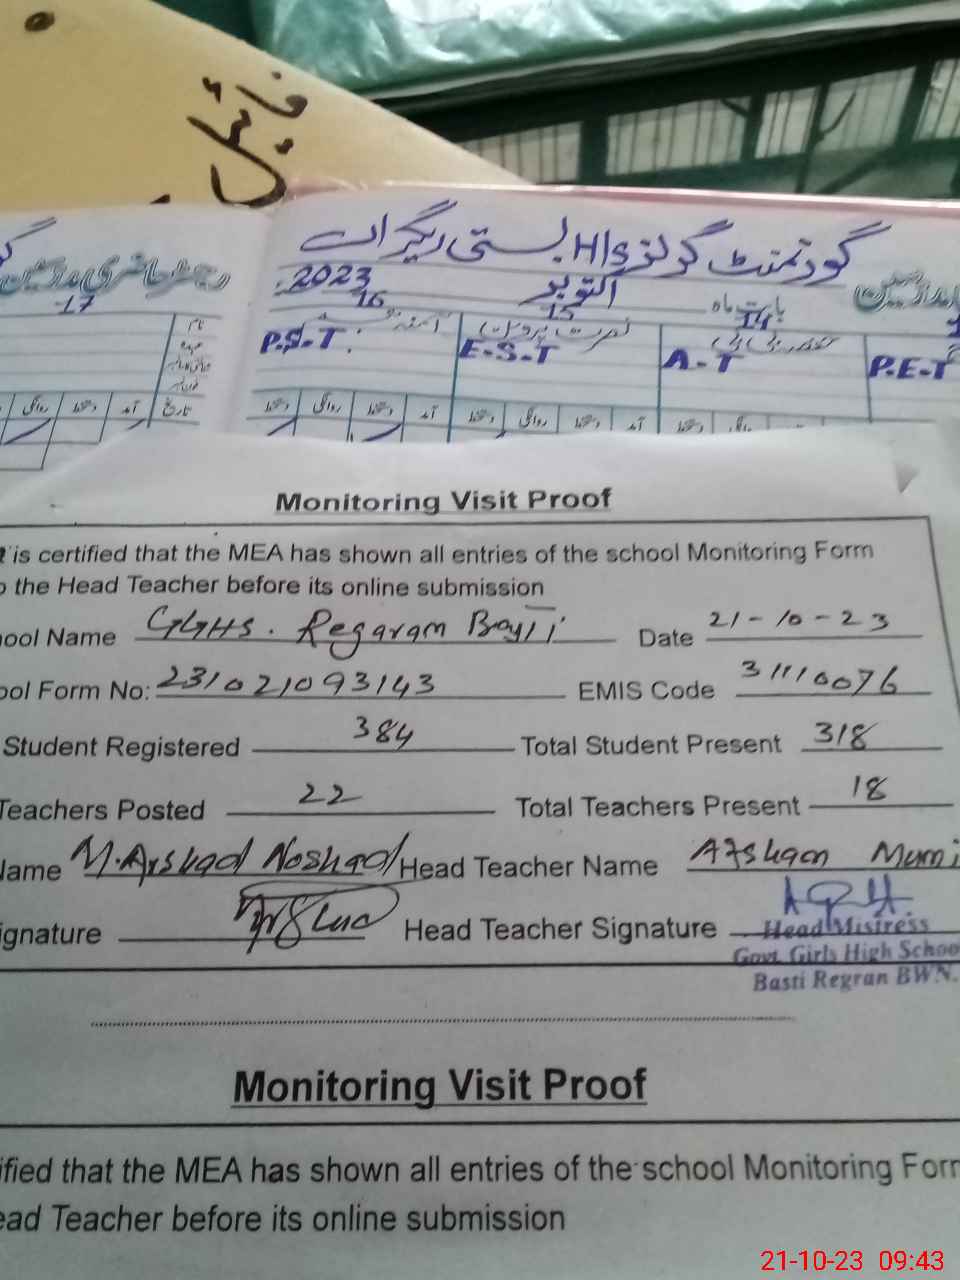 فائل
گورنمنٹ گرلز H/S بستی ریگراں
رجسٹر حاضری مدرسین
2023 اکتوبر بابت ماہ
17 16 15 14
P.S.T E.S.T A-T P.E-T
تاریخ آمد دستخط روانگی
دستخط روانگی دستخط آمد دستخط روانگی دستخط آمد دستخط
Monitoring Visit Proof
is certified that the MEA has shown all entries of the school Monitoring Form
the Head Teacher before its online submission
ool Name GGHS. Regaram Basti Date 21-10-23
ool Form No: 231021093143 EMIS Code 31110076
Student Registered 384 Total Student Present 318
Teachers Posted 22 Total Teachers Present 18
Name M.Arshad Noshad Head Teacher Name Afshan
ignature Head Teacher Signature
Head Mistress
Govt. Girls High Schoo
Basti Regran BWN.
Monitoring Visit Proof
ified that the MEA has shown all entries of the school Monitoring Form
ead Teacher before its online submission
21-10-23 09:43